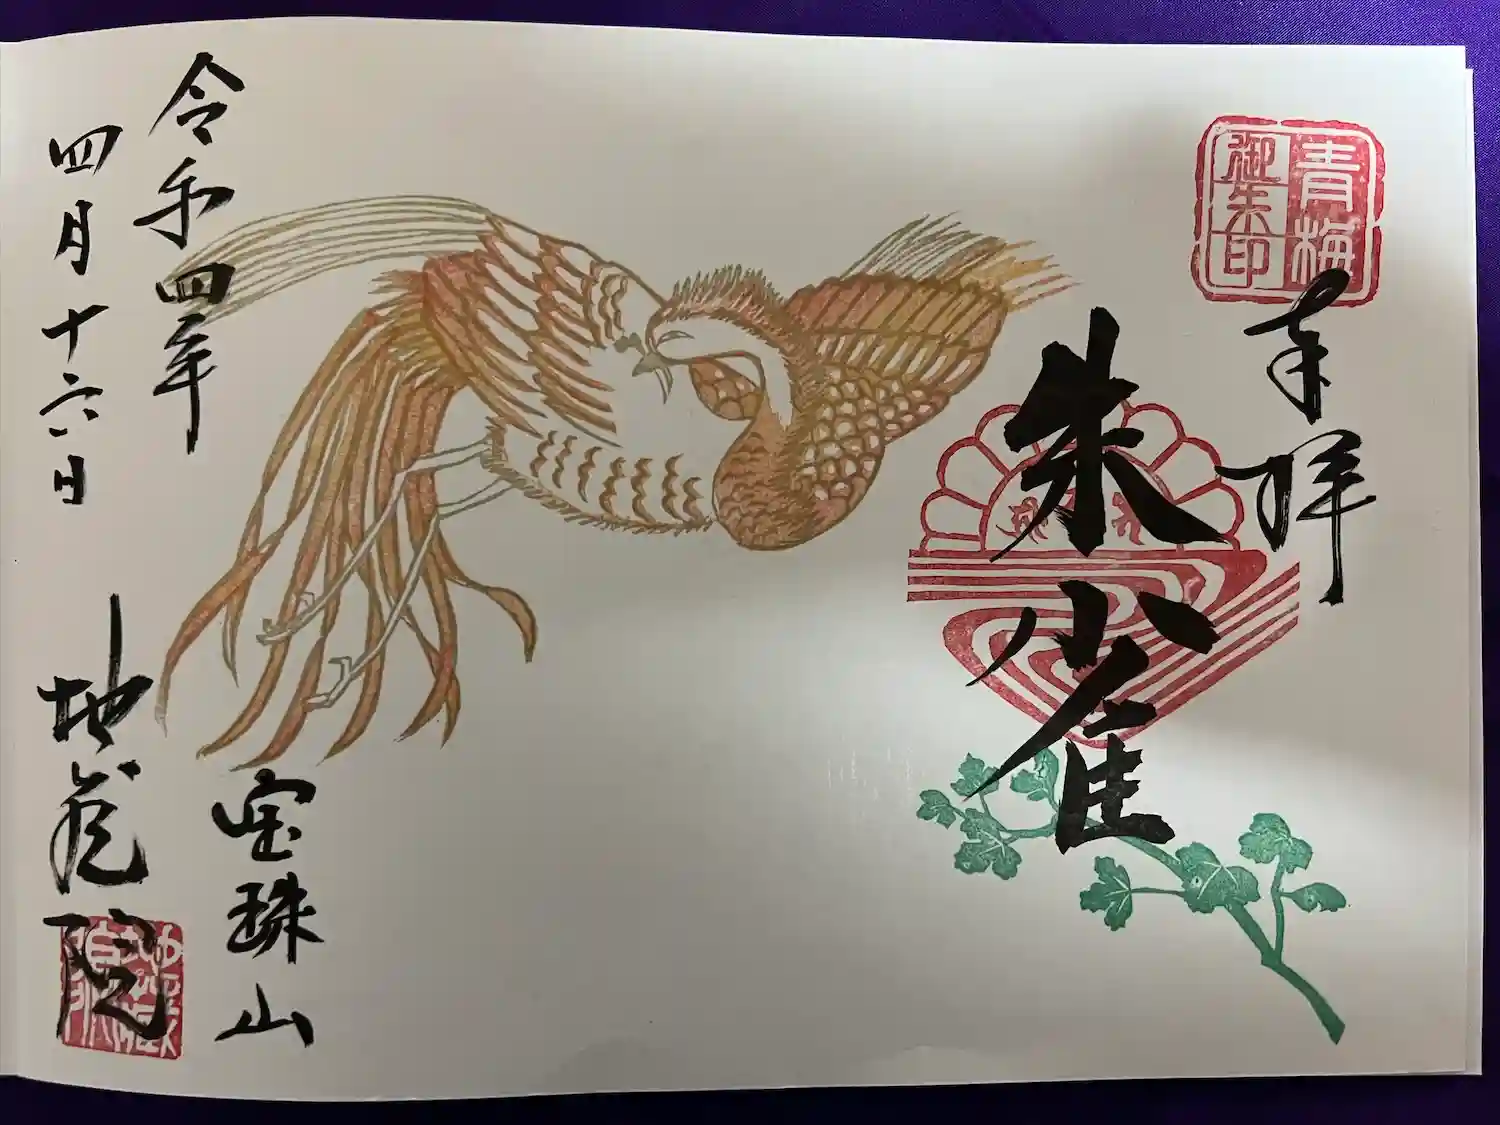 青梅
御朱印
奉拝
朱雀
宝珠山
令和四年
四月十六日
地蔵院
地蔵院